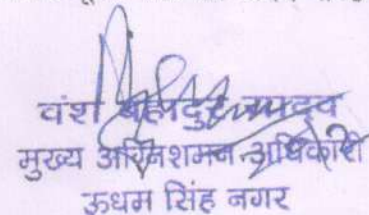 वंश बहादुर यादव
मुख्य अग्निशमन अधिकारी
ऊधम सिंह नगर